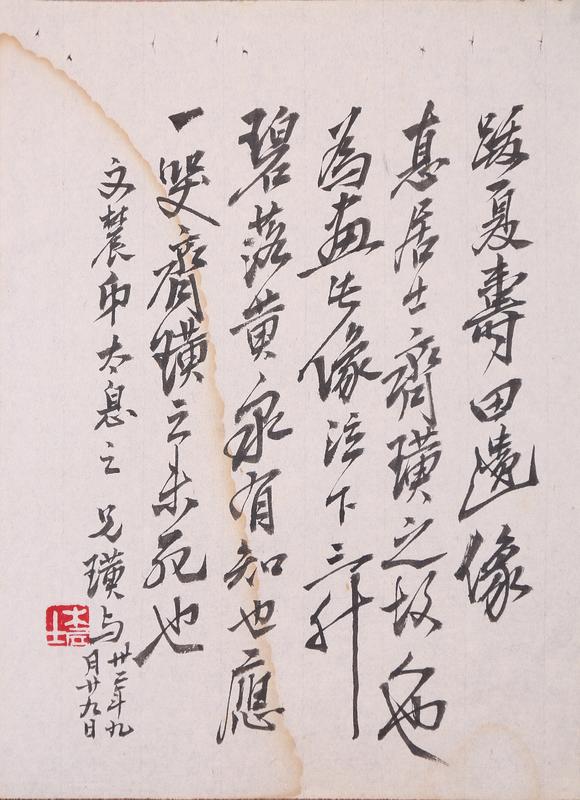 跋夏壽田遺像
直心居士齊璜之故人也
為畫此像泣下三升
碧落黃泉有知也應
一哭齊璜之未死也
文 太息之 兄璜与
卅二年九
月廿九日
木居士